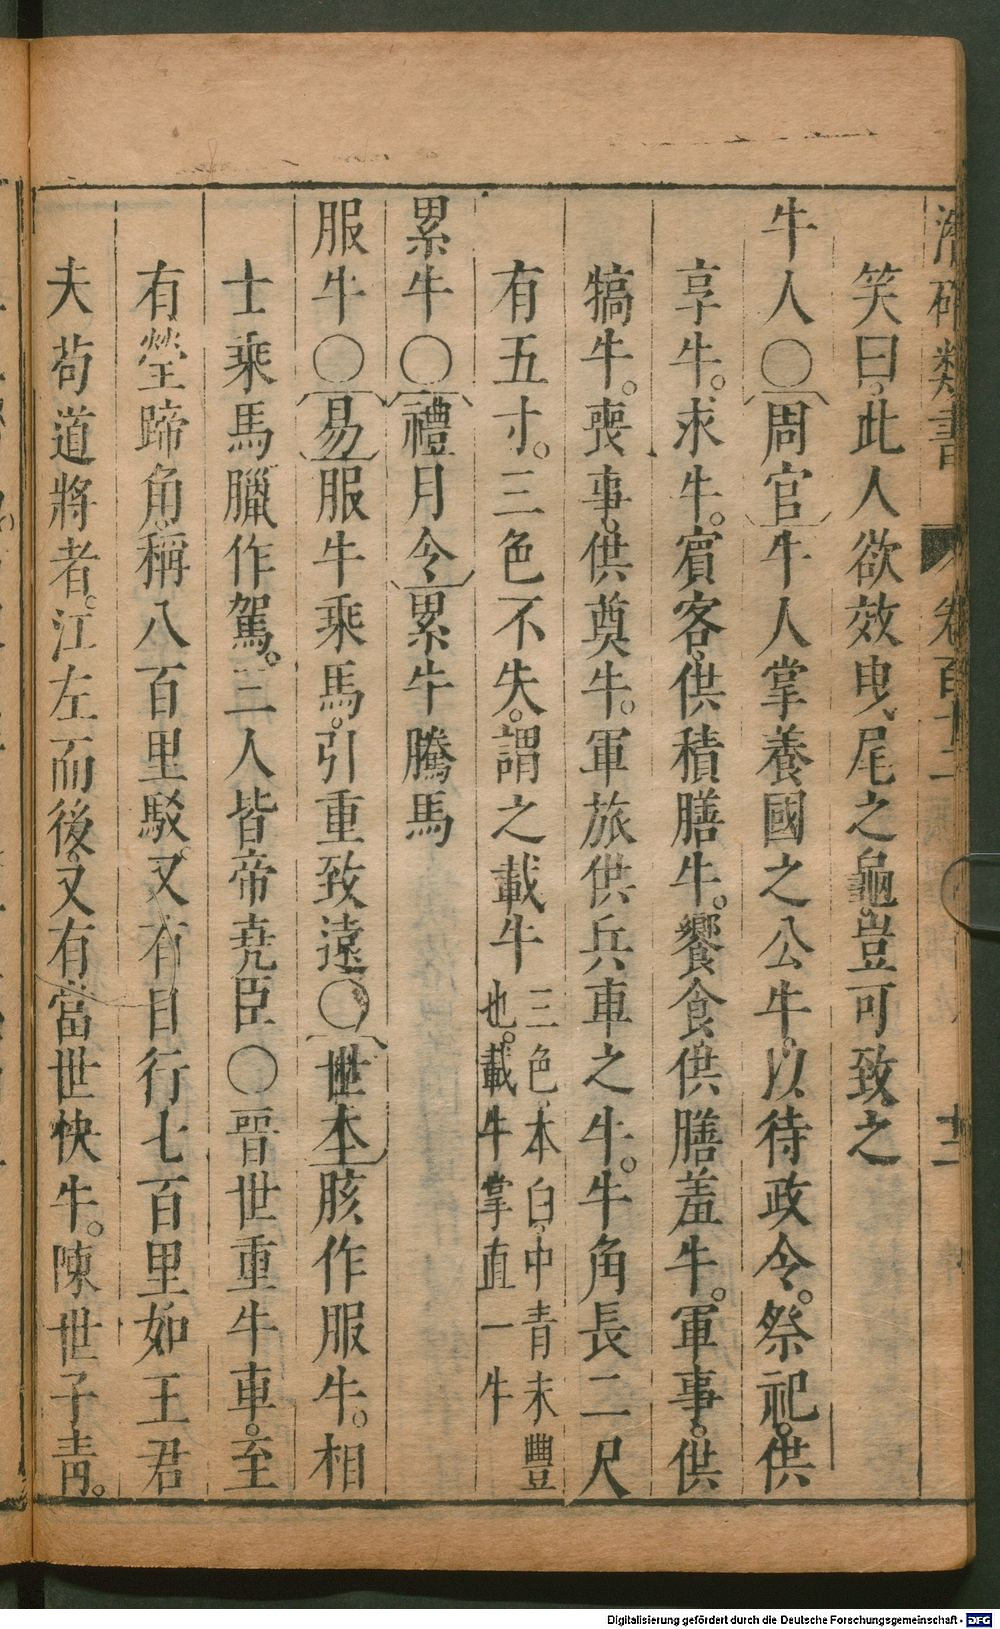 潛確類書 卷百十二 十二
笑曰此人欲效曳尾之龜豈可致之
牛人〇周官牛人掌養國之公牛以待政令祭祀供
享牛求牛賓客供積膳牛饗食供膳羞牛軍事供
犒牛喪事供奠牛軍旅供兵車之牛牛角長二尺
有五寸三色不失謂之載牛三色本白中青末豐
也載牛掌直一牛
累牛〇禮月令累牛騰馬
服牛〇易服牛乘馬引重致遠〇世本胲作服牛相
士乘馬臘作駕三人皆帝堯臣〇晉世重牛車至
有瑩蹄角稱八百里駁又有日行七百里如王君
夫苟道將者江左而後又有當世快牛陳世子青
Digitalisierung gefördert durch die Deutsche Forschungsgemeinschaft - DFG